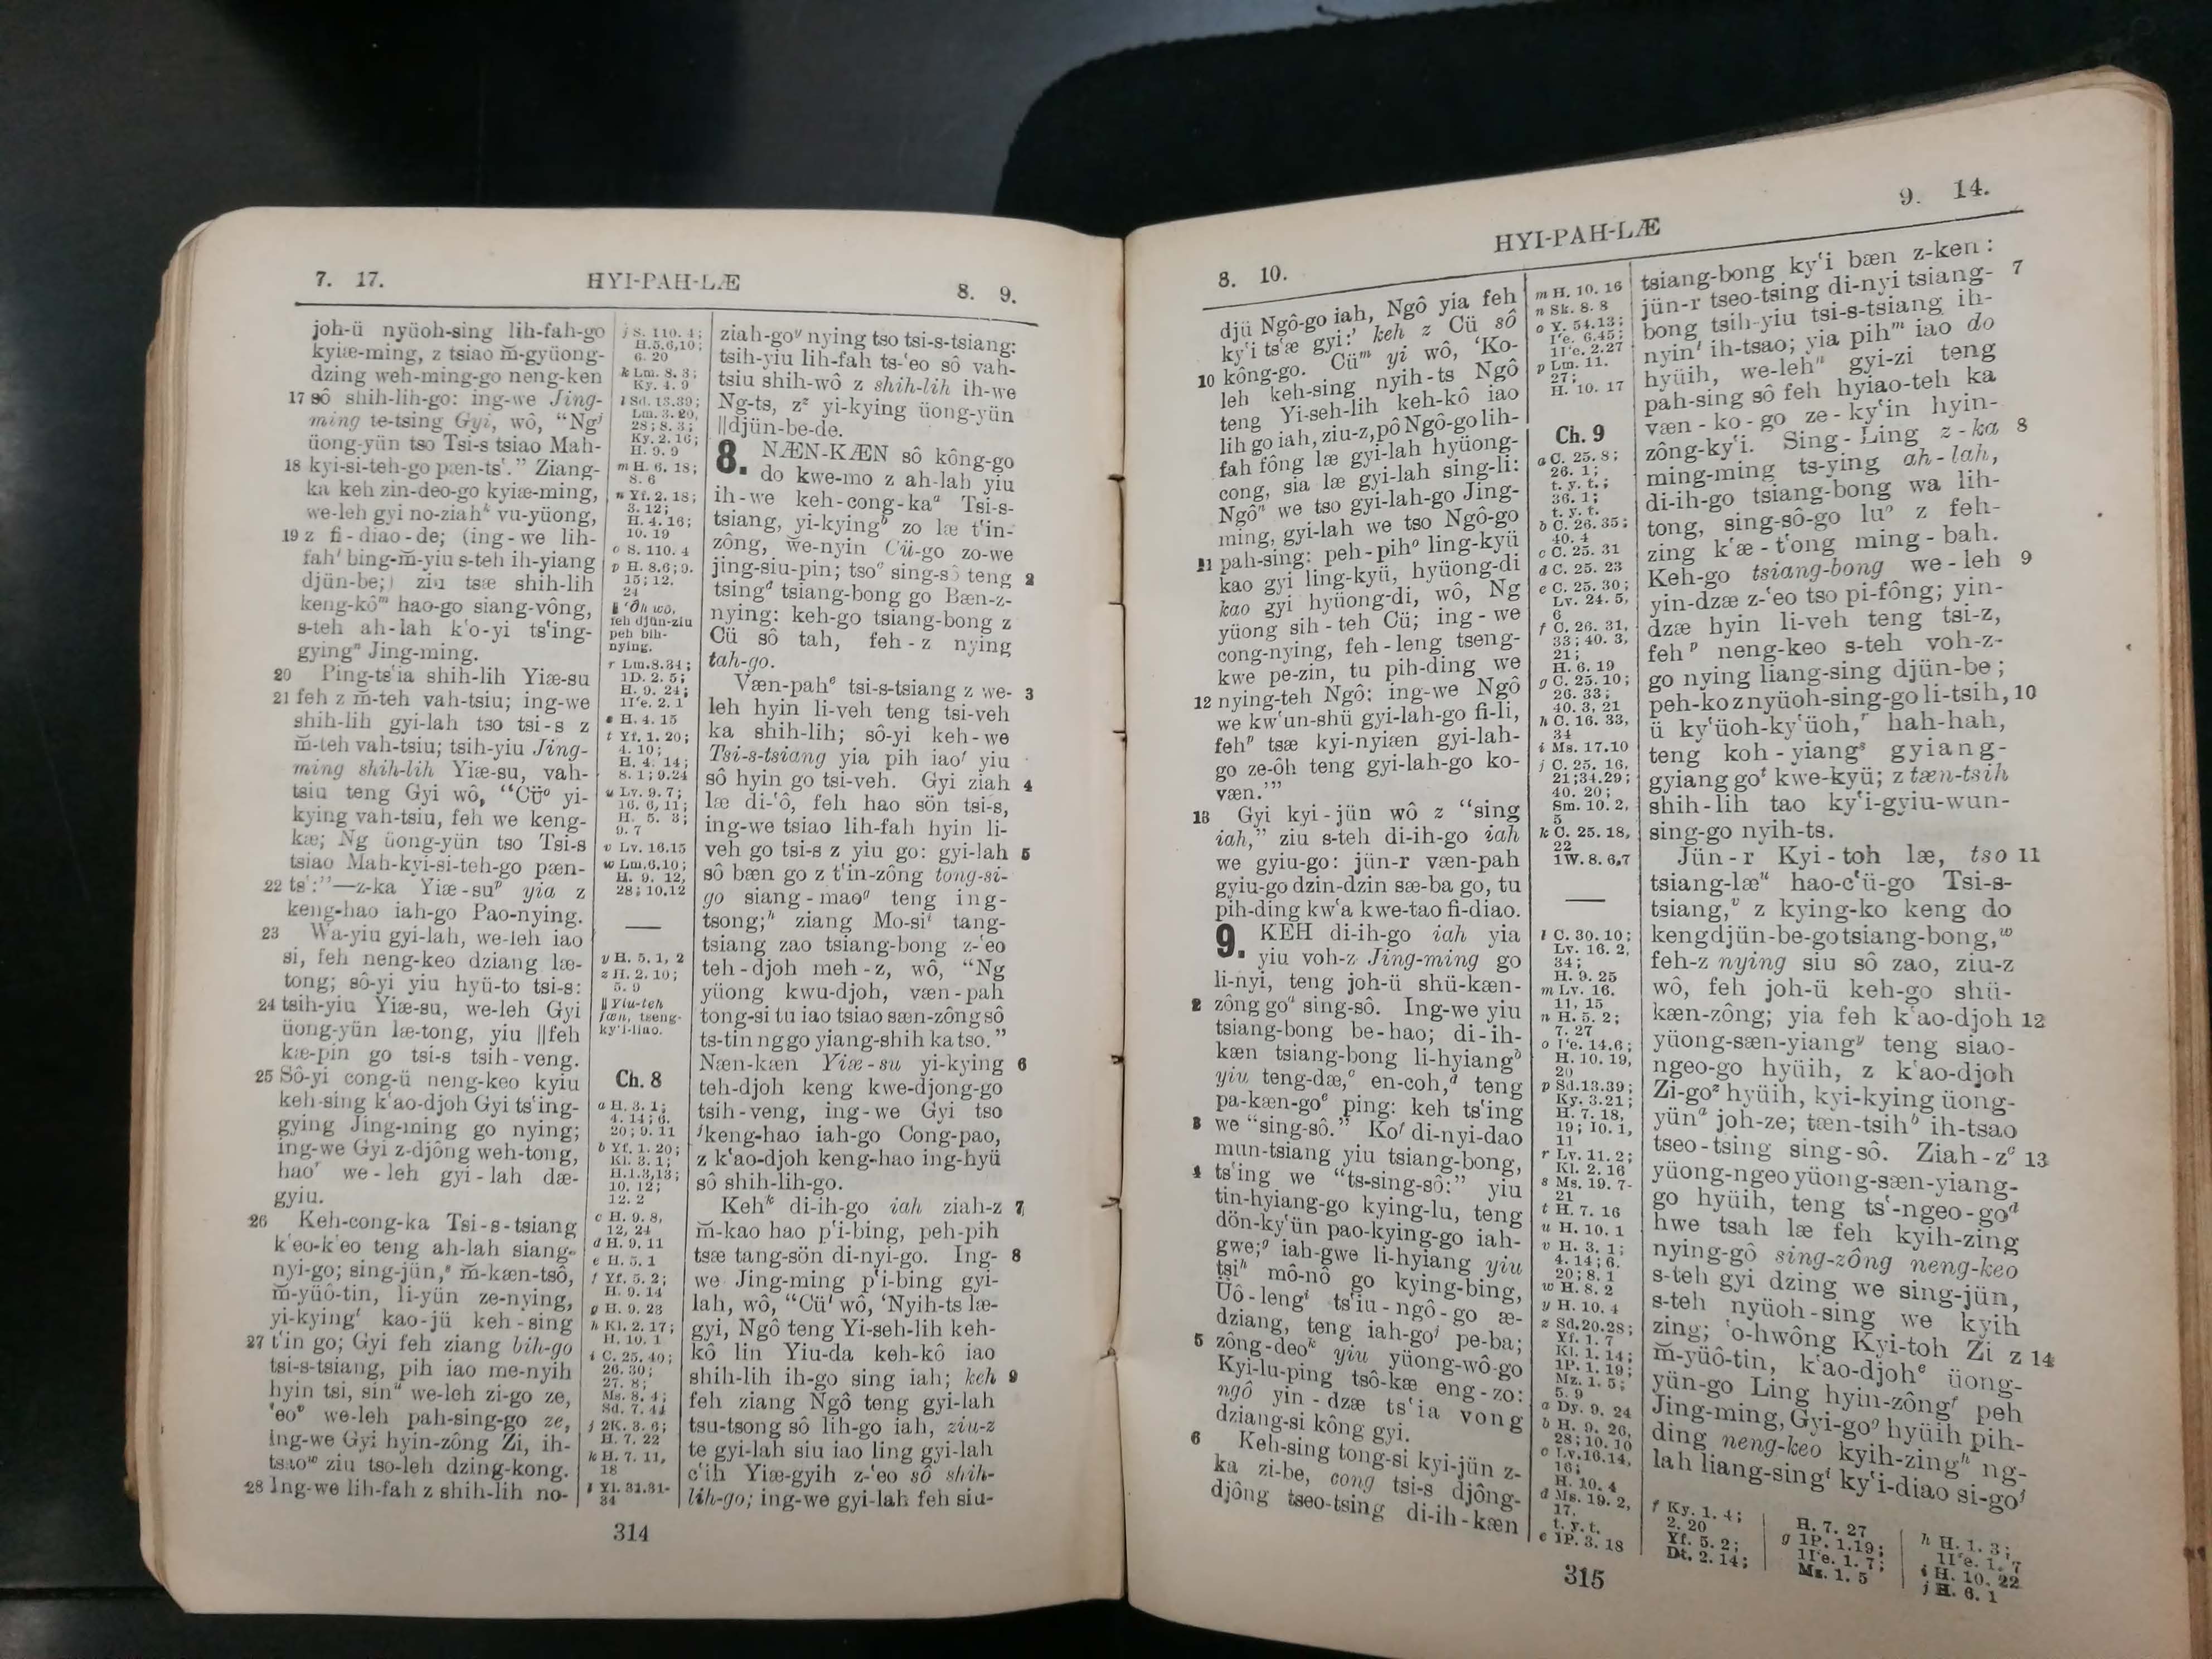 7. 17.
HYI-PAH-LÆ
8. 9.
joh-ü nyüoh-sing lih-fah-go
kyiæ-ming, z tsiao m̆-gyüong-
dzing weh-ming-go neng-ken
17 sô shih-lih-go: ing-we Jing-
ming te-tsing Gyi, wô, “Ngʲ
üong-yün tso Tsi-s tsiao Mah-
18 kyi-si-teh-go pæn-tsʻ.” Ziang-
ka keh zin-deo-go kyiæ-ming,
we-leh gyi no-ziahᵏ vu-yüong,
19 z fi-diao-de; (ing-we lih-
fahˡ bing-m̆-yiu s-teh ih-yiang
djün-be;) ziu tsæ shih-lih
keng-kôᵐ hao-go siang-vông,
s-teh ah-lah kʻo-yi tsʻing-
gyingⁿ Jing-ming.
20 Ping-tsʻia shih-lih Yiæ-su
21 feh z m̆-teh vah-tsiu; ing-we
shih-lih gyi-lah tso tsi-s z
m̆-teh vah-tsiu; tsih-yiu Jing-
ming shih-lih Yiæ-su, vah-
tsiu teng Gyi wô, “Cüᵒ yi-
kying vah-tsiu, feh we keng-
kæ; Ng üong-yün tso Tsi-s
tsiao Mah-kyi-si-teh-go pæn-
22 tsʻ:”—z-ka Yiæ-suᵖ yia z
keng-hao iah-go Pao-nying.
23 Wa-yiu gyi-lah, we-leh iao
si, feh neng-keo dziang læ-
tong; sô-yi yiu hyü-to tsi-s:
24 tsih-yiu Yiæ-su, we-leh Gyi
üong-yün læ-tong, yiu ||feh
kæ-pin go tsi-s tsih-veng.
25 Sô-yi cong-ü neng-keo kyiu
keh-sing kʻao-djoh Gyi tsʻing-
gying Jing-ming go nying;
ing-we Gyi z-djông weh-tong,
haoʳ we-leh gyi-lah dæ-
gyiu.
26 Keh-cong-ka Tsi-s-tsiang
kʻeo-kʻeo teng ah-lah siang-
nyi-go; sing-jün,ˢ m̆-kæn-tsô,
m̆-yüô-tin, li-yün ze-nying,
yi-kyingᵗ kao-jü keh-sing
27 tʻin go; Gyi feh ziang bih-go
tsi-s-tsiang, pih iao me-nyih
hyin tsi, sinᵘ we-leh zi-go ze,
ʻeoᵛ we-leh pah-sing-go ze,
ing-we Gyi hyin-zông Zi, ih-
tsaoʷ ziu tso-leh dzing-kong.
28 Ing-we lih-fah z shih-lih no-
j S. 110. 4;
H.5.6,10;
6. 20
k Lm. 8. 3;
Ky. 4. 9
l Sd. 13.39;
Lm. 3. 20,
28; 8. 3;
Ky. 2. 16;
H. 9. 9
m H. 6. 18;
8. 6
n Yf. 2. 18;
3. 12;
H. 4. 16;
10. 19
o S. 110. 4
p H. 8.6; 9.
15; 12.
24
|| ʻÔh wô,
feh djün-ziu
peh bih-
nying.
r Lm.8.34;
1D. 2. 5;
H. 9. 24;
1Iʻe. 2. 1
s H. 4. 15
t Yf. 1. 20;
4. 10;
H. 4. 14;
8. 1; 9.24
u Lv. 9. 7;
16. 6, 11;
H. 5. 3;
9. 7
v Lv. 16.15
w Lm.6.10;
H. 9. 12,
28; 10.12
y H. 5. 1, 2
z H. 2. 10;
5. 9
|| Yiu-teh
fæn, tseng-
kyʻi-liao.
Ch. 8
a H. 3. 1;
4. 14; 6.
20; 9. 11
b Yf. 1. 20;
Kl. 3. 1;
H.1.3,13;
10. 12;
12. 2
c H. 9. 8,
12, 24
d H. 9. 11
e H. 5. 1
f Yf. 5. 2;
H. 9. 14
g H. 9. 23
h Kl. 2. 17;
H. 10. 1
i C. 25. 40;
26. 30;
27. 8;
Ms. 8. 4;
Sd. 7. 44
j 2K. 3. 6;
H. 7. 22
k H. 7. 11,
18
l Yl. 31.31-
34
ziah-goʸ nying tso tsi-s-tsiang:
tsih-yiu lih-fah ts-ʻeo sô vah-
tsiu shih-wô z shih-lih ih-we
Ng-ts, zᶻ yi-kying üong-yün
||djün-be-de.
8. NÆN-KÆN sô kông-go
do kwe-mo z ah-lah yiu
ih-we keh-cong-kaᵃ Tsi-s-
tsiang, yi-kyingᵇ zo læ tʻin-
zông, we-nyin Cü-go zo-we
jing-siu-pin; tsoᶜ sing-sô teng 2
tsingᵈ tsiang-bong go Bæn-z-
nying: keh-go tsiang-bong z
Cü sô tah, feh-z nying
tah-go.
Væn-pahᵉ tsi-s-tsiang z we- 3
leh hyin li-veh teng tsi-veh
ka shih-lih; sô-yi keh-we
Tsi-s-tsiang yia pih iaoᶠ yiu
sô hyin go tsi-veh. Gyi ziah 4
læ di-ʻô, feh hao sön tsi-s,
ing-we tsiao lih-fah hyin li-
veh go tsi-s z yiu go: gyi-lah 5
sô bæn go z tʻin-zông tong-si-
go siang-maoᵍ teng ing-
tsong;ʰ ziang Mo-siⁱ tang-
tsiang zao tsiang-bong z-ʻeo
teh-djoh meh-z, wô, “Ng
yüong kwu-djoh, væn-pah
tong-si tu iao tsiao sæn-zông sô
ts-tin ng go yiang-shih ka tso.”
Næn-kæn Yiæ-su yi-kying 6
teh-djoh keng kwe-djong-go
tsih-veng, ing-we Gyi tso
ʲkeng-hao iah-go Cong-pao,
z kʻao-djoh keng-hao ing-hyü
sô shih-lih-go.
Kehᵏ di-ih-go iah ziah-z 7
m̆-kao hao pʻi-bing, peh-pih
tsæ tang-sön di-nyi-go. Ing- 8
we Jing-ming pʻi-bing gyi-
lah, wô, “Cüˡ wô, ‘Nyih-ts læ-
gyi, Ngô teng Yi-seh-lih keh-
kô lin Yiu-da keh-kô iao
shih-lih ih-go sing iah; keh 9
feh ziang Ngô teng gyi-lah
tsu-tsong sô lih-go iah, ziu-z
te gyi-lah siu iao ling gyi-lah
cʻih Yiæ-gyih z-ʻeo sô shih-
lih-go; ing-we gyi-lah feh siu-
314
8. 10.
HYI-PAH-LÆ
9. 14.
djü Ngô-go iah, Ngô yia feh
kyʻi tsʻæ gyi:’ keh z Cü sô
10 kông-go. Cüᵐ yi wô, ‘Ko-
leh keh-sing nyih-ts Ngô
teng Yi-seh-lih keh-kô iao
lih go iah, ziu-z, pô Ngô-go lih-
fah fông læ gyi-lah hyüong-
cong, sia læ gyi-lah sing-li:
Ngôⁿ we tso gyi-lah-go Jing-
ming, gyi-lah we tso Ngô-go
11 pah-sing: peh-pihᵒ ling-kyü
kao gyi ling-kyü, hyüong-di
kao gyi hyüong-di, wô, Ng
yüong sih-teh Cü; ing-we
cong-nying, feh-leng tseng-
kwe pe-zin, tu pih-ding we
12 nying-teh Ngô: ing-we Ngô
we kwʻun-shü gyi-lah-go fi-li,
fehᵖ tsæ kyi-nyiæn gyi-lah-
go ze-ôh teng gyi-lah-go ko-
væn.’”
13 Gyi kyi-jün wô z “sing
iah,” ziu s-teh di-ih-go iah
we gyiu-go: jün-r væn-pah
gyiu-go dzin-dzin sæ-ba go, tu
pih-ding kwʻa kwe-tao fi-diao.
9. KEH di-ih-go iah yia
yiu voh-z Jing-ming go
li-nyi, teng joh-ü shü-kæn-
2 zông goᵃ sing-sô. Ing-we yiu
tsiang-bong be-hao; di-ih-
kæn tsiang-bong li-hyiangᵇ
yiu teng-dæ,ᶜ en-coh,ᵈ teng
pa-kæn-goᵉ ping: keh tsʻing
3 we “sing-sô.” Koᶠ di-nyi-dao
mun-tsiang yiu tsiang-bong,
4 tsʻing we “ts-sing-sô:” yiu
tin-hyiang-go kying-lu, teng
dön-kyʻün pao-kying-go iah-
gwe;ᵍ iah-gwe li-hyiang yiu
tsiʰ mô-nô go kying-bing,
Üô-lengⁱ tsʻiu-ngô-go æ-
dziang, teng iah-goʲ pe-ba;
5 zông-deoᵏ yiu yüong-wô-go
Kyi-lu-ping tsô-kæ eng-zo:
ngô yin-dzæ tsʻia vong
dziang-si kông gyi.
6 Keh-sing tong-si kyi-jün z-
ka zi-be, cong tsi-s djông-
djông tseo-tsing di-ih-kæn
m H. 10. 16
n Sk. 8. 8
o Y. 54.13;
Iʻe. 6.45;
1Iʻe. 2.27
p Lm. 11.
27;
H. 10. 17
Ch. 9
a C. 25. 8;
26. 1;
t. y. t.;
36. 1;
t. y. t.
b C. 26. 35;
40. 4
c C. 25. 31
d C. 25. 23
e C. 25. 30;
Lv. 24. 5,
6
f C. 26. 31,
33; 40. 3,
21;
H. 6. 19
g C. 25. 10;
26. 33;
40. 3, 21
h C. 16. 33,
34
i Ms. 17.10
j C. 25. 16,
21;34.29;
40. 20;
Sm. 10. 2,
5
k C. 25. 18,
22
1W. 8. 6,7
l C. 30. 10;
Lv. 16. 2,
34;
H. 9. 25
m Lv. 16.
11, 15
n H. 5. 2;
7. 27
o Iʻe. 14.6;
H. 10. 19,
20
p Sd.13.39;
Ky. 3.21;
H. 7. 18,
19; 10. 1,
11
r Lv. 11. 2;
Kl. 2. 16
s Ms. 19. 7-
21
t H. 7. 16
u H. 10. 1
v H. 3. 1;
4. 14; 6.
20; 8. 1
w H. 8. 2
y H. 10. 4
z Sd.20.28;
Yf. 1. 7
Kl. 1. 14;
1P. 1. 19;
Mz. 1. 5;
5. 9
a Dy. 9. 24
b H. 9. 26,
28; 10. 10
c Lv.16.14,
16;
H. 10. 4
d Ms. 19. 2,
17.
t. y. t.
e 1P. 3. 18
tsiang-bong kyʻi bæn z-ken:
jün-r tseo-tsing di-nyi tsiang- 7
bong tsih-yiu tsi-s-tsiang ih-
nyinˡ ih-tsao; yia pihᵐ iao do
hyüih, we-lehⁿ gyi-zi teng
pah-sing sô feh hyiao-teh ka
væn-ko-go ze-kyʻin hyin-
zông-kyʻi. Sing-Ling z-ka 8
ming-ming ts-ying ah-lah,
di-ih-go tsiang-bong wa lih-
tong, sing-sô-go luᵒ z feh-
zing kʻæ-tʻong ming-bah.
Keh-go tsiang-bong we-leh 9
yin-dzæ z-ʻeo tso pi-fông; yin-
dzæ hyin li-veh teng tsi-z,
fehᵖ neng-keo s-teh voh-z-
go nying liang-sing djün-be;
peh-ko z nyüoh-sing-go li-tsih, 10
ü kyʻüoh-kyʻüoh,ʳ hah-hah,
teng koh-yiangˢ gyiang-
gyiang goᵗ kwe-kyü; z tæn-tsih
shih-lih tao kyʻi-gyiu-wun-
sing-go nyih-ts.
Jün-r Kyi-toh læ, tso 11
tsiang-læᵘ hao-cʻü-go Tsi-s-
tsiang,ᵛ z kying-ko keng do
keng djün-be-go tsiang-bong,ʷ
feh-z nying siu sô zao, ziu-z
wô, feh joh-ü keh-go shü-
kæn-zông; yia feh kʻao-djoh 12
yüong-sæn-yiangʸ teng siao-
ngeo-go hyüih, z kʻao-djoh
Zi-goᶻ hyüih, kyi-kying üong-
yünᵃ joh-ze; tæn-tsihᵇ ih-tsao
tseo-tsing sing-sô. Ziah-zᶜ 13
yüong-ngeo yüong-sæn-yiang-
go hyüih, teng tsʻ-ngeo-goᵈ
hwe tsah læ feh kyih-zing
nying-gô sing-zông neng-keo
s-teh gyi dzing we sing-jün,
s-teh nyüoh-sing we kyih
zing; ʻo-hwông Kyi-toh Zi z 14
m̆-yüô-tin, kʻao-djohᵉ üong-
yün-go Ling hyin-zôngᶠ peh
Jing-ming, Gyi-goᵍ hyüih pih-
ding neng-keo kyih-zingʰ ng-
lah liang-singⁱ kyʻi-diao si-goʲ
f Ky. 1. 4;
2. 20
Yf. 5. 2;
Dt. 2. 14;
H. 7. 27
g 1P. 1.19;
1Iʻe. 1. 7;
Mz. 1. 5
h H. 1. 3;
1Iʻe. 1. 7
i H. 10. 22
j H. 6. 1
315